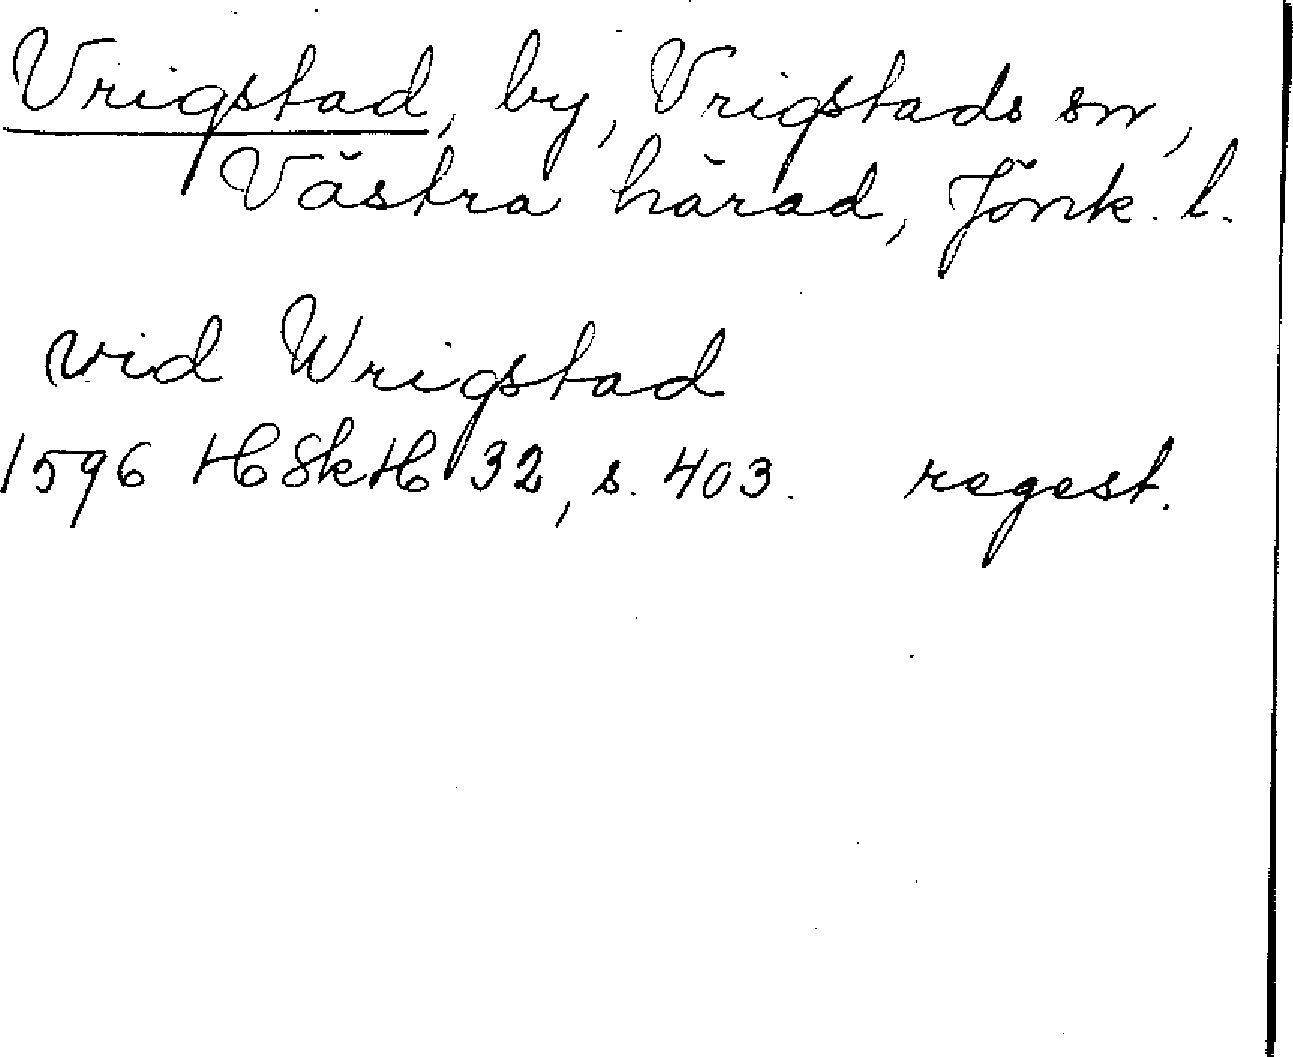 Vrigstad, by, Vrigstads sn,
Västra härad, Jönk. l.
vid Wrigstad
1596 HSkH 32, s. 403. regest.